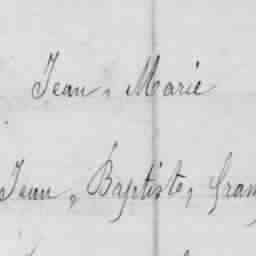 Jean, Marie
Jean, Baptiste,